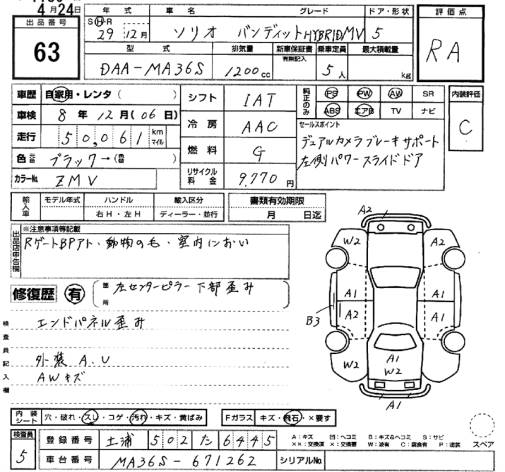 4月24日
出品番号
63
年式 車名 グレード ドア・形状
S H R
29年 12月 ソリオ バンディットHYBRIDMV 5
型式 排気量 新車保証書 有無記入 乗車定員 最大積載量
DAA-MA36S 1200cc 5人 kg
評価点
RA
車歴 自家用・レンタ( )
車検 8年 12月 (06日)
走行 50,061 km マイル
色 ブラック→(色)
カラーNo. ZMV
シフト IAT
冷房 AAC
燃料 G
リサイクル料金 9,770円
純正のみ PS PW AW SR
ABS エアB TV ナビ
セールスポイント
デュアルカメラブレーキサポート
左側パワースライドドア
内装評価
C
輸入車 モデル年式 ハンドル 輸入区分
年 右H・左H ディーラー・並行
書類有効期限
月 日迄
出品店申告欄
※注意事項等記載
RゲートBPアト・動物の毛・室内におい
修復歴 有 箇所 左センターピラー下部歪み
検査員記入欄
エンドパネル歪み
外装 A.U
AWキズ
A2
W2 A2
A1 A1
B3 A2 A1
W2 A1 W2 W2
A1
スペア
内装シート 穴・破れ・スレ・コゲ・汚れ・キズ・黄ばみ
Fガラス キズ・飛石・×要す
検査員
5
登録番号 土浦 502 た 6445
車台番号 MA36S-671262 シリアルNo.
A:キズ U:ヘコミ B:キズ&ヘコミ S:サビ
XX:交換済 X:要交換 W:波有 C:腐食有 P:塗装